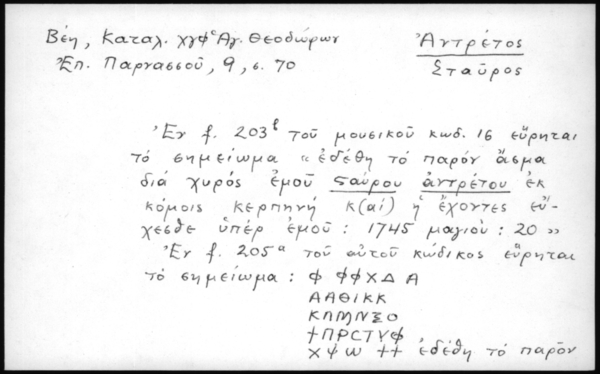 Βέη, Καταλ. χγφ Ἁγ. Θεοδώρων
Ἀντρέτος
Ἐπ. Παρνασσοῦ, 9, σ. 70
Σταῦρος
Ἐν f. 203β τοῦ μουσικοῦ κωδ. 16 εὕρηται
τὸ σημείωμα «ἐδέθη τὸ παρὸν ἄσμα
διά χυρός ἐμοῦ ϛαύρου ἀντρέτου ἐκ
κόμοις κερπηνή κ(αί) ἡ ἔχοντες εὔ-
χεσθε ὑπέρ ἐμοῦ: 1745 μαγιοῦ: 20»
Ἐν f. 205α τοῦ αὐτοῦ κώδικος εὕρηται
τὸ σημείωμα: Φ ΦΦΧΔ Α
ΑΑΘΙΚΚ
ΚΛΜΝΞΟ
†ΠΡСΤΥΦ
ΧΨΩ †† ἐδέθη τὸ παρὸν